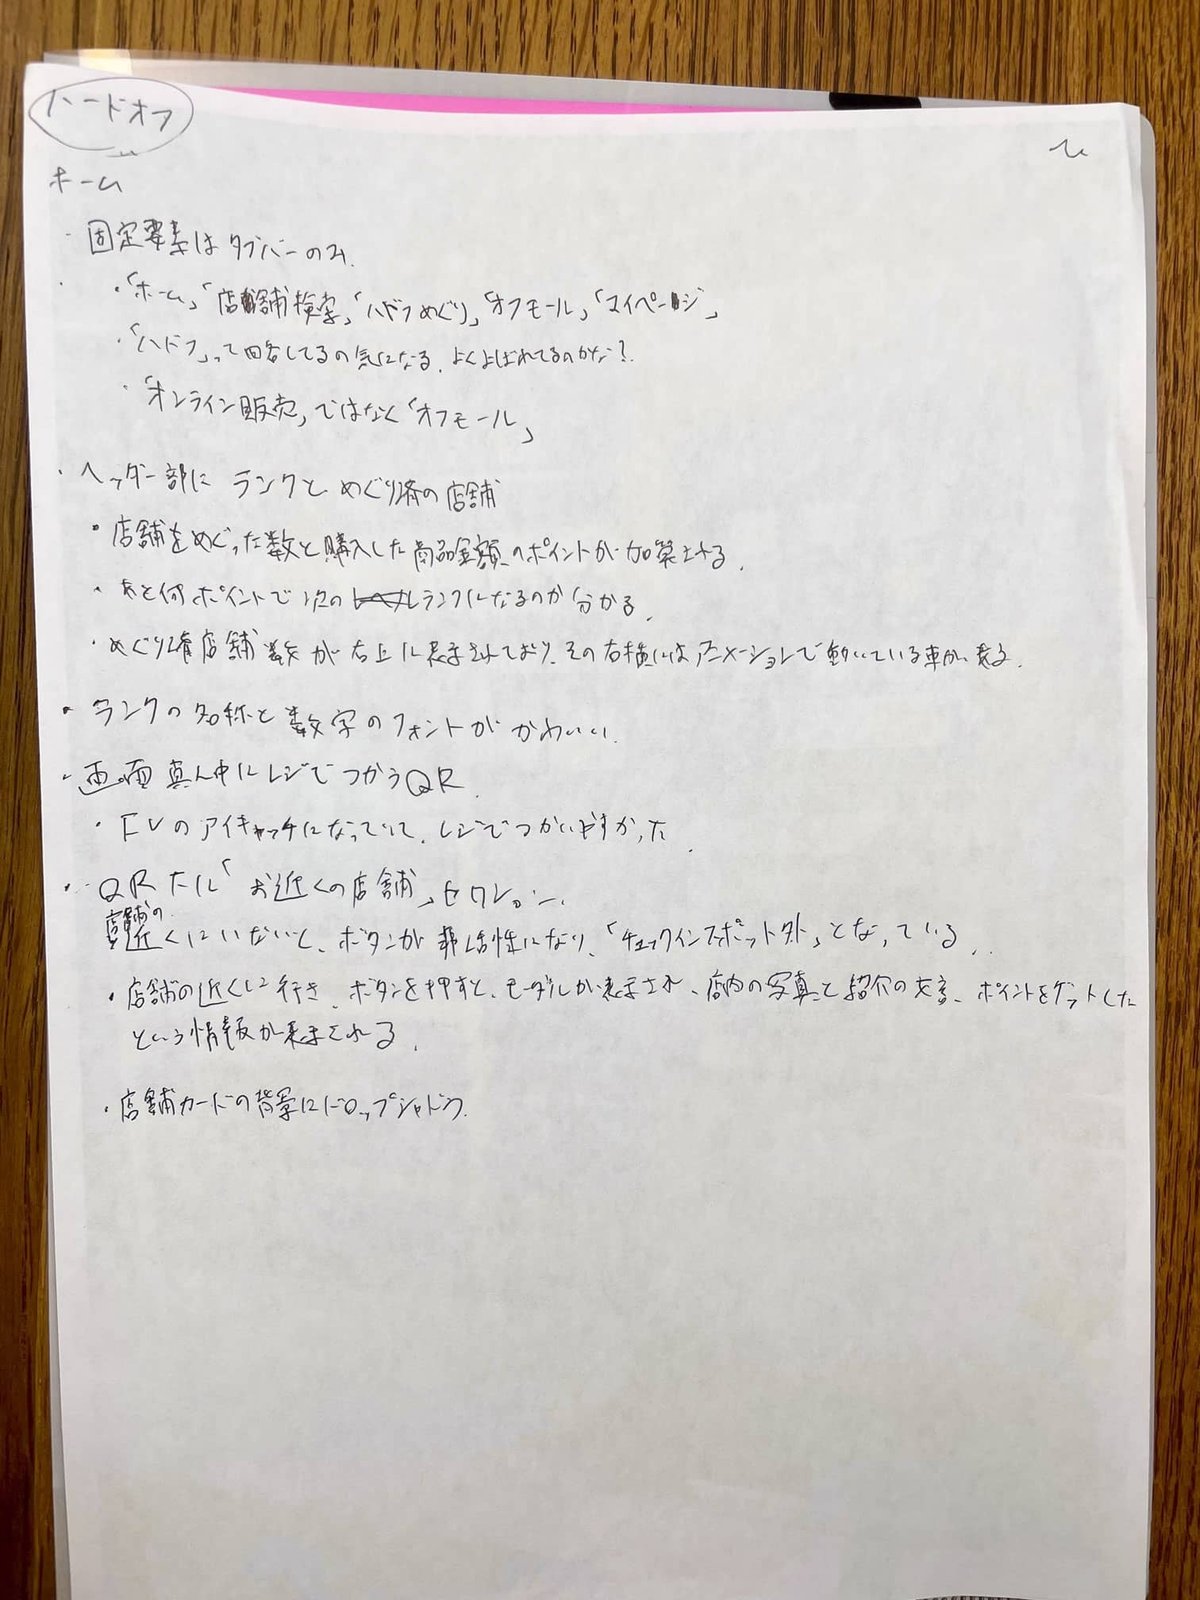 ハードオフ
ホーム
・固定要素はタブバーのみ.
・「ホーム」「店舗検索」「ハドフめぐり」「オフモール」「マイページ」
・「ハドフ」って回答してるの気になる.よくよばれてるのかな?
・「オンライン販売」ではなく「オフモール」
・ヘッダー部に ランクと めぐり済の店舗
・店舗をめぐった数と購入した商品金額のポイントが加算される.
・あと何ポイントで次のランクになるのか分かる.
・めぐり済店舗数が右上に表示されており、その右横にはアニメーションで動いている車が走る.
・ランクの名称と数字のフォントがかわいい.
・画面真ん中にレジでつかうQR.
・FVのアイキャッチになっていて、レジでつかいやすかった.
・QR下に「お近くの店舗」セクション.
店舗の近くにいないと、ボタンが非活性になり、「チェックインスポット外」となっている.
・店舗の近くに行き、ボタンを押すと、モーダルが表示され、店内の写真と紹介の文言、ポイントをゲットした
という情報が表示される.
・店舗カードの背景にドロップシャドウ.